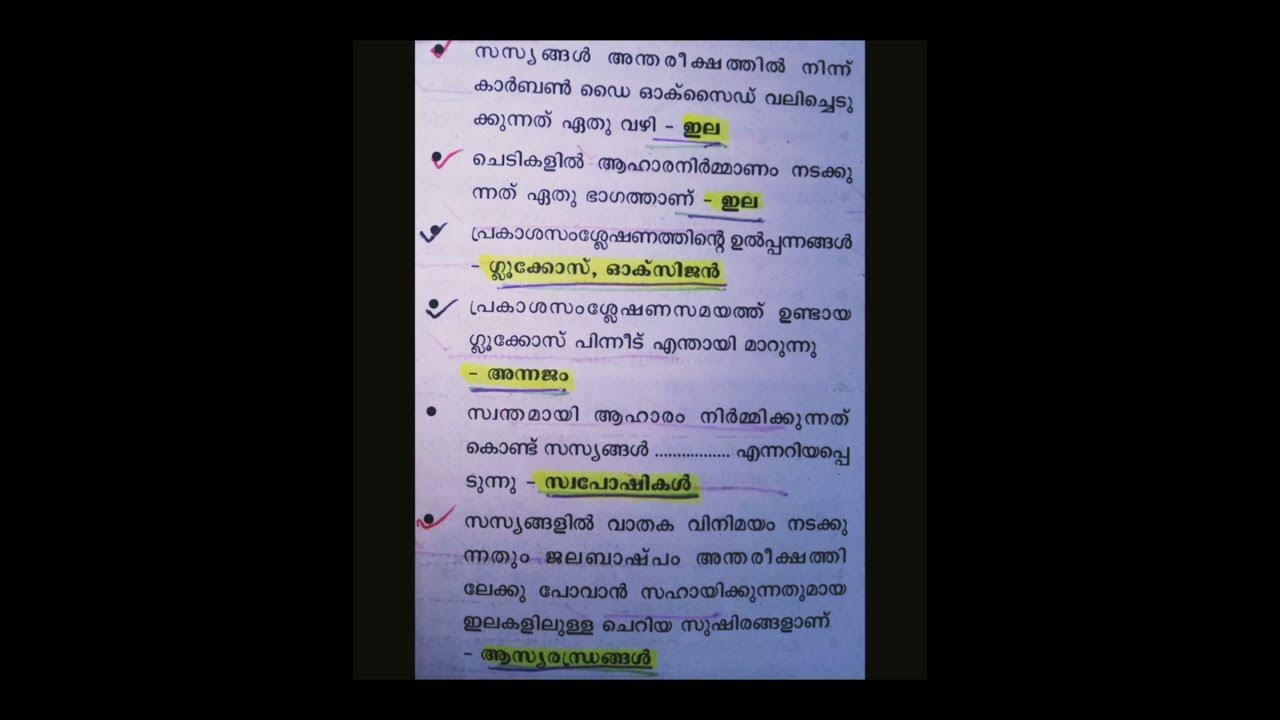 സസ്യങ്ങൾ അന്തരീക്ഷത്തിൽ നിന്ന്
കാർബൺ ഡൈ ഓക്സൈഡ് വലിച്ചെടു
ക്കുന്നത് ഏതു വഴി - ഇല
ചെടികളിൽ ആഹാരനിർമ്മാണം നടക്കു
ന്നത് ഏതു ഭാഗത്താണ് - ഇല
പ്രകാശസംശ്ലേഷണത്തിന്റെ ഉൽപ്പന്നങ്ങൾ
- ഗ്ലൂക്കോസ്, ഓക്സിജൻ
പ്രകാശസംശ്ലേഷണസമയത്ത് ഉണ്ടായ
ഗ്ലൂക്കോസ് പിന്നീട് എന്തായി മാറുന്നു
- അന്നജം
സ്വന്തമായി ആഹാരം നിർമ്മിക്കുന്നത്
കൊണ്ട് സസ്യങ്ങൾ ................. എന്നറിയപ്പെ
ടുന്നു - സ്വപോഷികൾ
സസ്യങ്ങളിൽ വാതക വിനിമയം നടക്കു
ന്നതും ജലബാഷ്പം അന്തരീക്ഷത്തി
ലേക്കു പോവാൻ സഹായിക്കുന്നതുമായ
ഇലകളിലുള്ള ചെറിയ സുഷിരങ്ങളാണ്
- ആസ്യരന്ധ്രങ്ങൾ